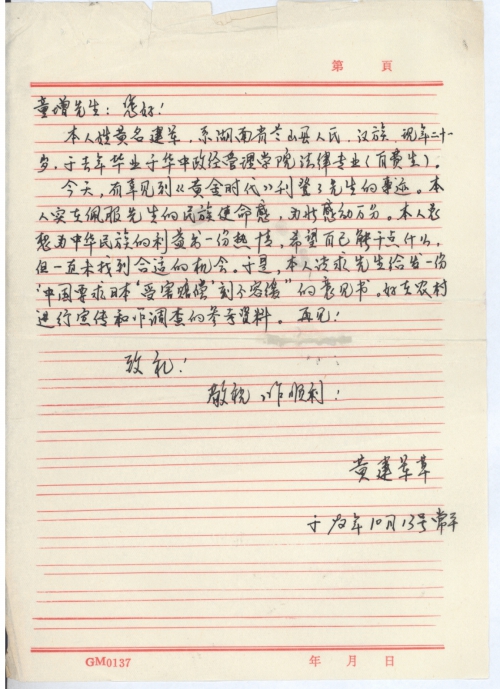 第 頁
童增先生：您好！
本人姓黄名建军，系湖南省兰山县人民，汉族，现年二十
岁，于去年毕业于华中政经管理学院法律专业（自费生）。
今天，有幸见到《黄金时代》刊登了先生的事迹。本
人实在佩服先生的民族使命感，为此感动万分。本人总
想为中华民族的利益尽一份热情，希望自己能干点什么，
但一直未找到合适的机会。于是，本人请求先生给发一份
“中国要求日本‘受害赔偿’刻不容缓”的意见书。好在农村
进行宣传和作调查的参考资料。再见！
致礼！
敬祝工作顺利！
黄建军草
于 年10月13号常平
GM0137
年 月 日